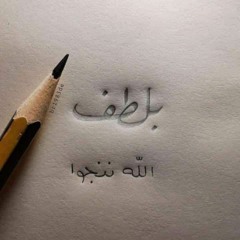 بلطف
الله ننجوا